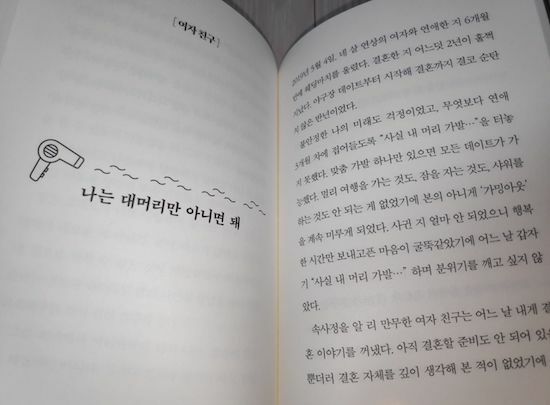 [여자 친구]
나는 대머리만 아니면 돼
2019년 5월 4일, 네 살 연상의 여자와 연애한 지 6개월
만에 웨딩마치를 울렸다. 결혼한 지 어느덧 2년이 훌쩍
지났다. 야구장 데이트부터 시작해 결혼까지 결코 순탄
치 않은 반년이었다.
불안정한 나의 미래도 걱정이었고, 무엇보다 연애
3개월 차에 접어들도록 “사실 내 머리 가발…”을 터놓
지 못했다. 맞춤 가발 하나만 있으면 모든 데이트가 가
능했다. 멀리 여행을 가는 것도, 잠을 자는 것도, 샤워를
하는 것도 안 되는 게 없었기에 본의 아니게 ‘가밍아웃’
을 계속 미루게 되었다. 사귄 지 얼마 안 되었으니 행복
한 시간만 보내고픈 마음이 굴뚝같았기에 어느 날 갑자
기 “사실 내 머리 가발…” 하며 분위기를 깨고 싶지 않
았다.
속사정을 알 리 만무한 여자 친구는 어느 날 내게 결
혼 이야기를 꺼냈다. 아직 결혼할 준비도 안 되어 있을
뿐더러 결혼 자체를 깊이 생각해 본 적이 없었기에